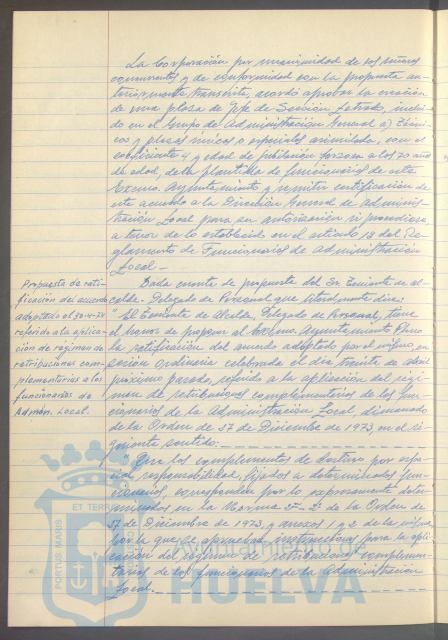 La Corporación por unanimidad de los señores
concurrentes y de conformidad con la propuesta an-
teriormente transcrita, acordó aprobar la creación
de una plaza de Jefe de Sección Letrado, inclui-
do en el Grupo de Administración General a) Técni-
cos y plazas únicas o especiales asimiladas, con el
coeficiente 4 y edad de jubilación forzosa a los 70 años
de edad, de la plantilla de funcionarios de este
Excmo. Ayuntamiento y remitir certificación de
este acuerdo a la Dirección General de Adminis-
tración Local para su autorización si procediere
a tenor de lo establecido en el artículo 13 del Re-
glamento de Funcionarios de Administración
Local.-
Propuesta de rati-
ficación del acuerdo
adoptado el 30-4-74
referido a la aplica-
ción de régimen de
retribuciones com-
plementarias a los
funcionarios de
Admón. Local.
Dada cuenta de propuesta del Sr. Teniente de Al-
calde- Delegado de Personal que literalmente dice:
"El Teniente de Alcalde, Delegado de Personal, tiene
el honor de proponer al Excmo. Ayuntamiento Pleno
la ratificación del acuerdo adoptado por el mismo, en
sesión ordinaria celebrada el día treinta de abril
próximo pasado, referido a la aplicación del régi-
men de retribuciones complementarias de los fun-
cionarios de la Administración Local, dimanado
de la Orden de 27 de Diciembre de 1973, en el si-
guiente sentido:
"Que los complementos de destino por espe-
cial responsabilidad, fijados a determinados fun-
cionarios, corresponden por lo expresamente deter-
minados en la Norma de la Orden de
27 de Diciembre de 1973, y anexos 1 y 2 de la misma,
por la que se aprueban instrucciones para la apli-
cación del régimen de retribuciones complemen-
tarias de los funcionarios de la Administración
Local.
PORTUS MARIS
ET TERRAE
HUELVA